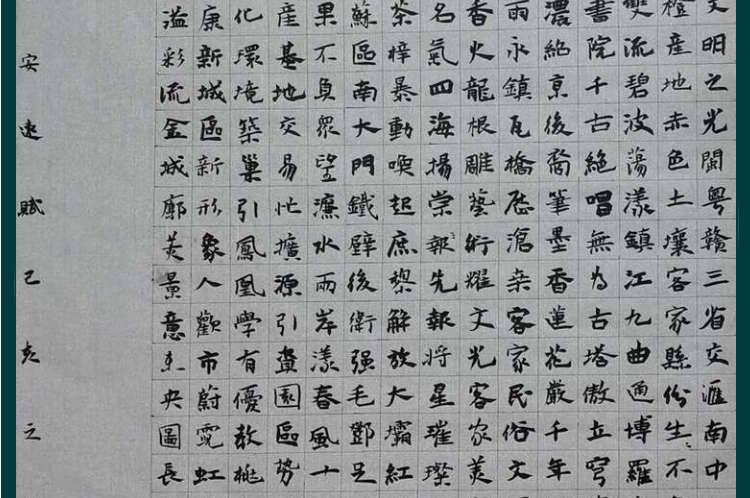 文明之光閩粵贛三省交滙南中
橙產地赤色土壤客家縣份生不
雙流碧波蕩漾鎮江九曲通博羅
書院千古絕唱無為古塔傲立穹
濃絕京後裔筆墨香蓮花嚴千年
雨永鎮瓦橋歷滄桑客家民俗文
香火龍根雕藝術耀文光客家美
名氣四海揚崇報先報將星璀璨
茶梓暴動喚起庶黎解放大壩紅
蘇區南大門鐵壁後衛强毛鄧足
果不負眾望濂水兩岸漾春風十
產基地交易忙擴源引資園區勢
化環境築巢引鳳凰學有優教桃
康新城區新形象人歡市蔚霓虹
溢彩流金城廓美景意未央圖長
安遠賦己亥之